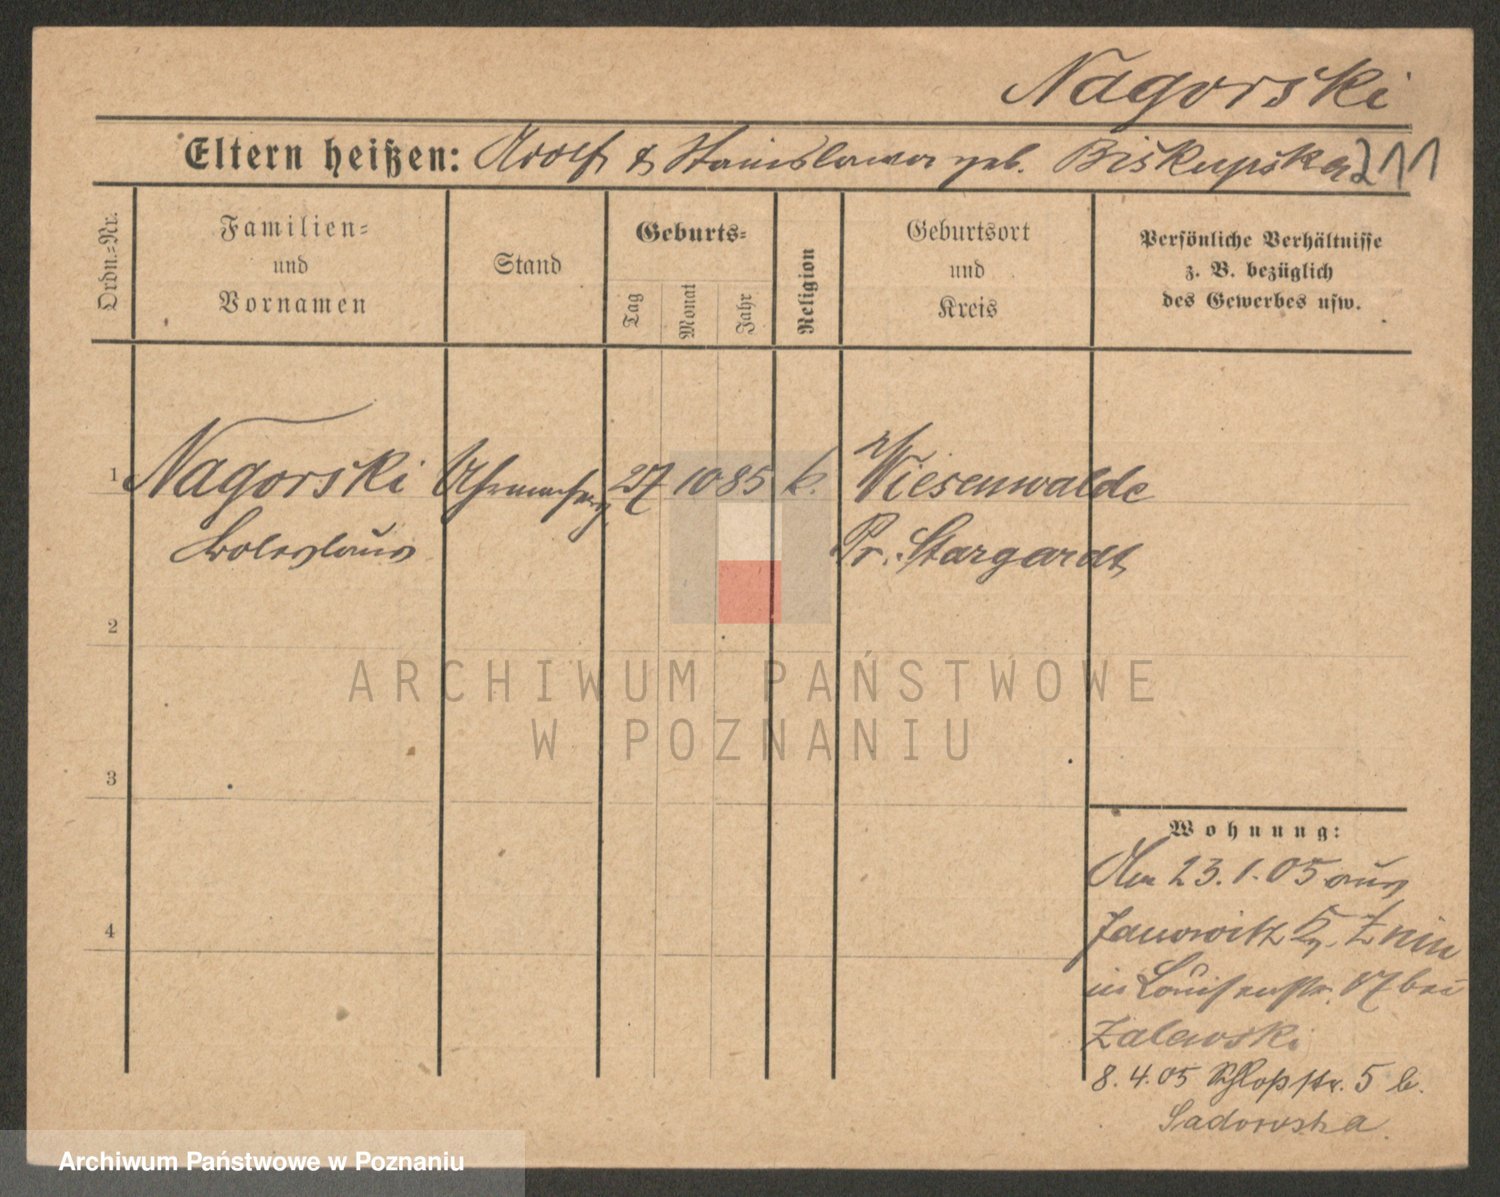 Nagorski
Eltern heißen: Adolf & Stanislawa geb. Biskupska 211
Ordn.=Nr.
Familien=
und
Vornamen
Stand
Geburts=
Tag
Monat
Jahr
Religion
Geburtsort
und
Kreis
Persönliche Verhältnisse
z. B. bezüglich
des Gewerbes usw.
1 Nagorski 27 10 85 k. Wiesenwalde
Boleslaus Pr. Stargardt
2
3
4
Wohnung:
Am 23.1.05 aus
Janowitz Kr. Znin
in Louisenstr. 17 bei
Zalewski
8.4.05 Schloßstr. 5 b.
Sadowska
ARCHIWUM PAŃSTWOWE
W POZNANIU
Archiwum Państwowe w Poznaniu